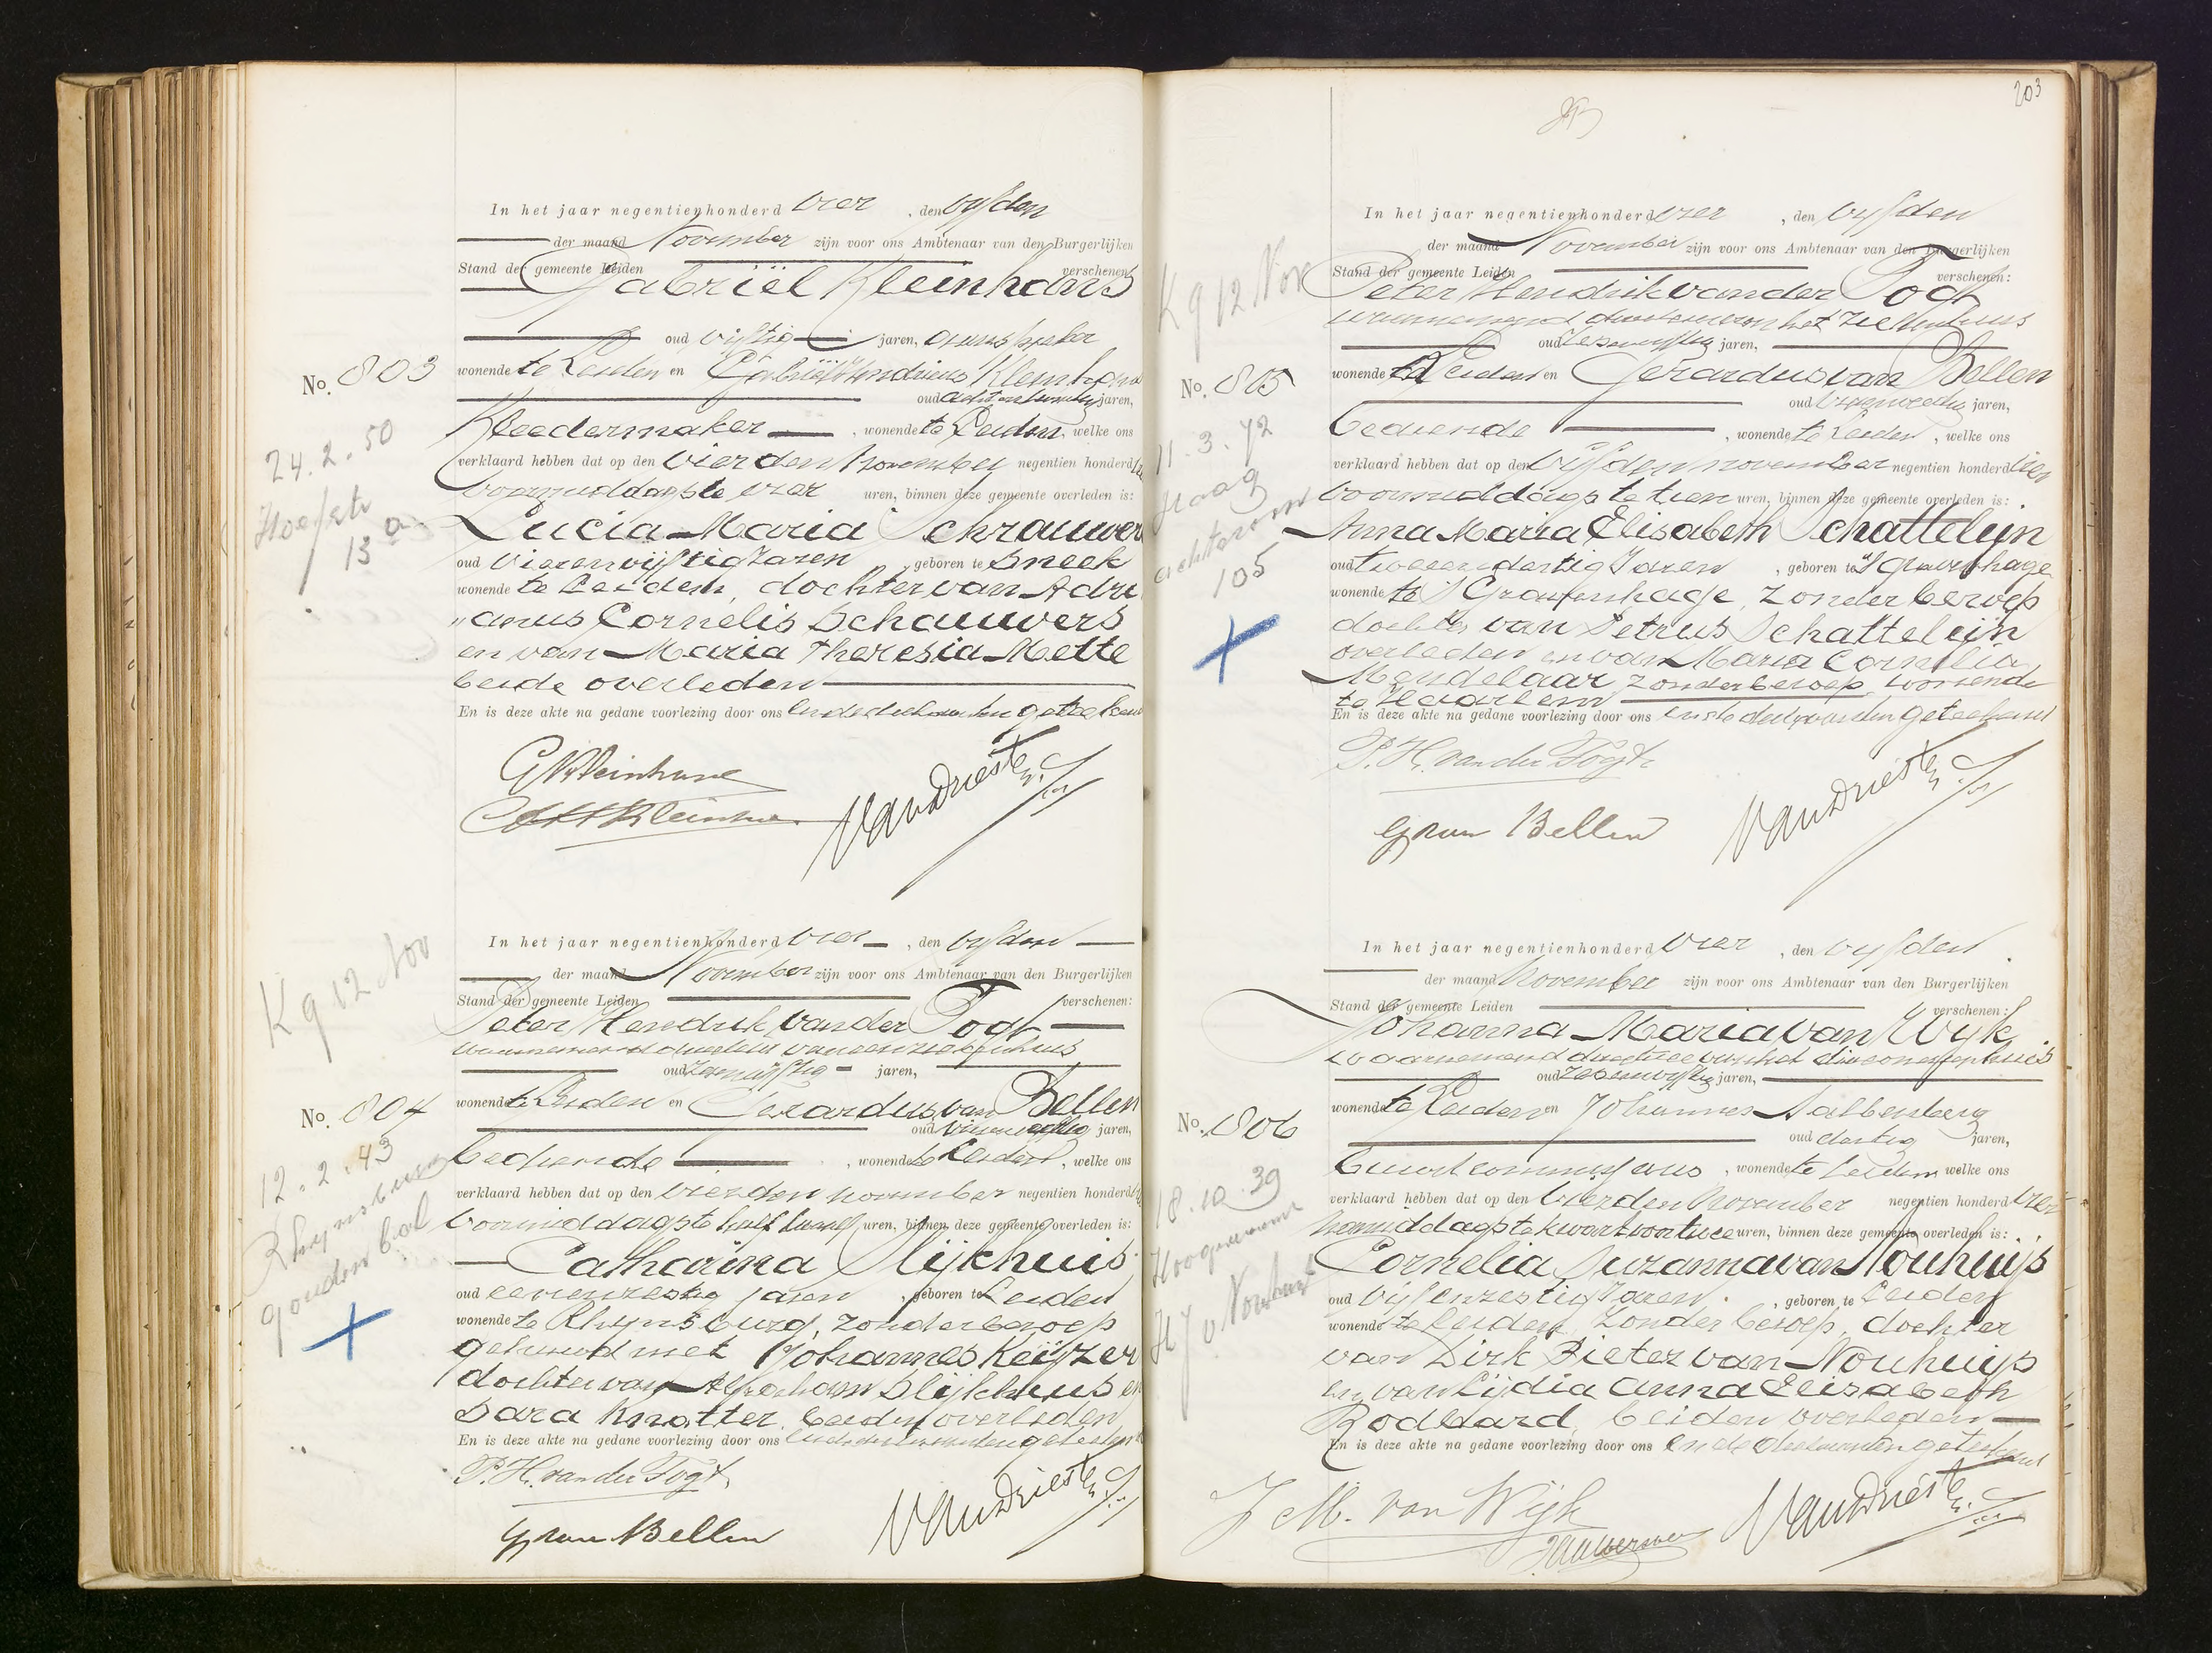 In het jaar negentienhonderd vier, den vijfden
der maand November zijn voor ons Ambtenaar van den Burgerlijken
Stand der gemeente Leiden verschenen:
Gabriël Kleinhans
oud vijftig jaren,
wonende te Leiden en Gabriël Hendricus Kleinhans
oud achtentwintig jaren,
Kleedermaker, wonende te Leiden, welke ons
verklaard hebben dat op den vierden November negentien honderd vier
voormiddags te vier uren, binnen deze gemeente overleden is:
Lucia Maria Schrauwers
oud vierenvijftig Jaren, geboren te Sneek
wonende te Leiden, dochter van Adri
"anus Cornelis Schauwers
en van Maria Theresia Mette
beide overleden
En is deze akte na gedane voorlezing door ons en de declaranten geteekend
No. 803
24.2.50
13 a
G Kleinhans
van Driesten
In het jaar negentienhonderd vier, den vijfden
der maand November zijn voor ons Ambtenaar van den Burgerlijken
Stand der gemeente Leiden verschenen:
Peter Hendrik van der Togt
oud jaren,
wonende te Leiden en Gerardus van Bellen
oud jaren,
bediende, wonende te Leiden, welke ons
verklaard hebben dat op den vierden november negentien honderd vier
voormiddags te half twaalf uren, binnen deze gemeente overleden is:
Catharina Slijkhuis
oud eenenzestig jaren, geboren te Leiden
wonende te Rhijnsburg, zonder beroep
gehuwd met Johannes Keijzer
dochter van Abraham Slijkhuis en
Sara Knotter, beiden overleden
En is deze akte na gedane voorlezing door ons en de declaranten geteekend
Kg 12 Nov
No. 804
12.2.43
Rhijnsburg
gouden bal
P. H. van der Togt
G van Bellen
van Driesten
203
In het jaar negentienhonderd vier, den vijfden
der maand November zijn voor ons Ambtenaar van den Burgerlijken
Stand der gemeente Leiden verschenen:
Peter Hendrik van der Togt
waarnemend directeur van het Ziekenhuis
oud jaren,
wonende te Leiden en Gerardus van Bellen
oud jaren,
bediende, wonende te Leiden, welke ons
verklaard hebben dat op den vijfden november negentien honderd vier
voormiddags te tien uren, binnen deze gemeente overleden is:
Anna Maria Elisabeth Schattelijn
oud tweeendertig Jaren, geboren te 's Gravenhage
wonende te 's Gravenhage, zonder beroep
dochter van Petrus Schattelijn
overleden en van Maria Cornelia
Mendelaar zonder beroep wonende
te Haarlem
En is deze akte na gedane voorlezing door ons en de declaranten geteekend
Kg 12 Nov
No. 805
11.3.72
Haag
achterom
105
P. H. van der Togt
G van Bellen
van Driesten
In het jaar negentienhonderd vier, den vijfden
der maand November zijn voor ons Ambtenaar van den Burgerlijken
Stand der gemeente Leiden verschenen:
Johanna Maria van Wijk
waarnemend directrice van het diaconessenhuis
oud zesenvijftig jaren,
wonende te Leiden en Johannes
oud dertig jaren,
buurtcommissaris, wonende te Leiden welke ons
verklaard hebben dat op den vierden November negentien honderd vier
namiddags te kwart voor twee uren, binnen deze gemeente overleden is:
Cornelia Suzanna van Nouhuijs
oud vijfenzestig Jaren, geboren te Leiden
wonende te Leiden, Zonder beroep, dochter
van Dirk Pieter van Nouhuijs
en van Lijdia Anna Elizabeth
Rodbard, beiden overleden
En is deze akte na gedane voorlezing door ons en de declaranten geteekend
No. 806
18.10.39
J. M. van Wijk
van Driesten